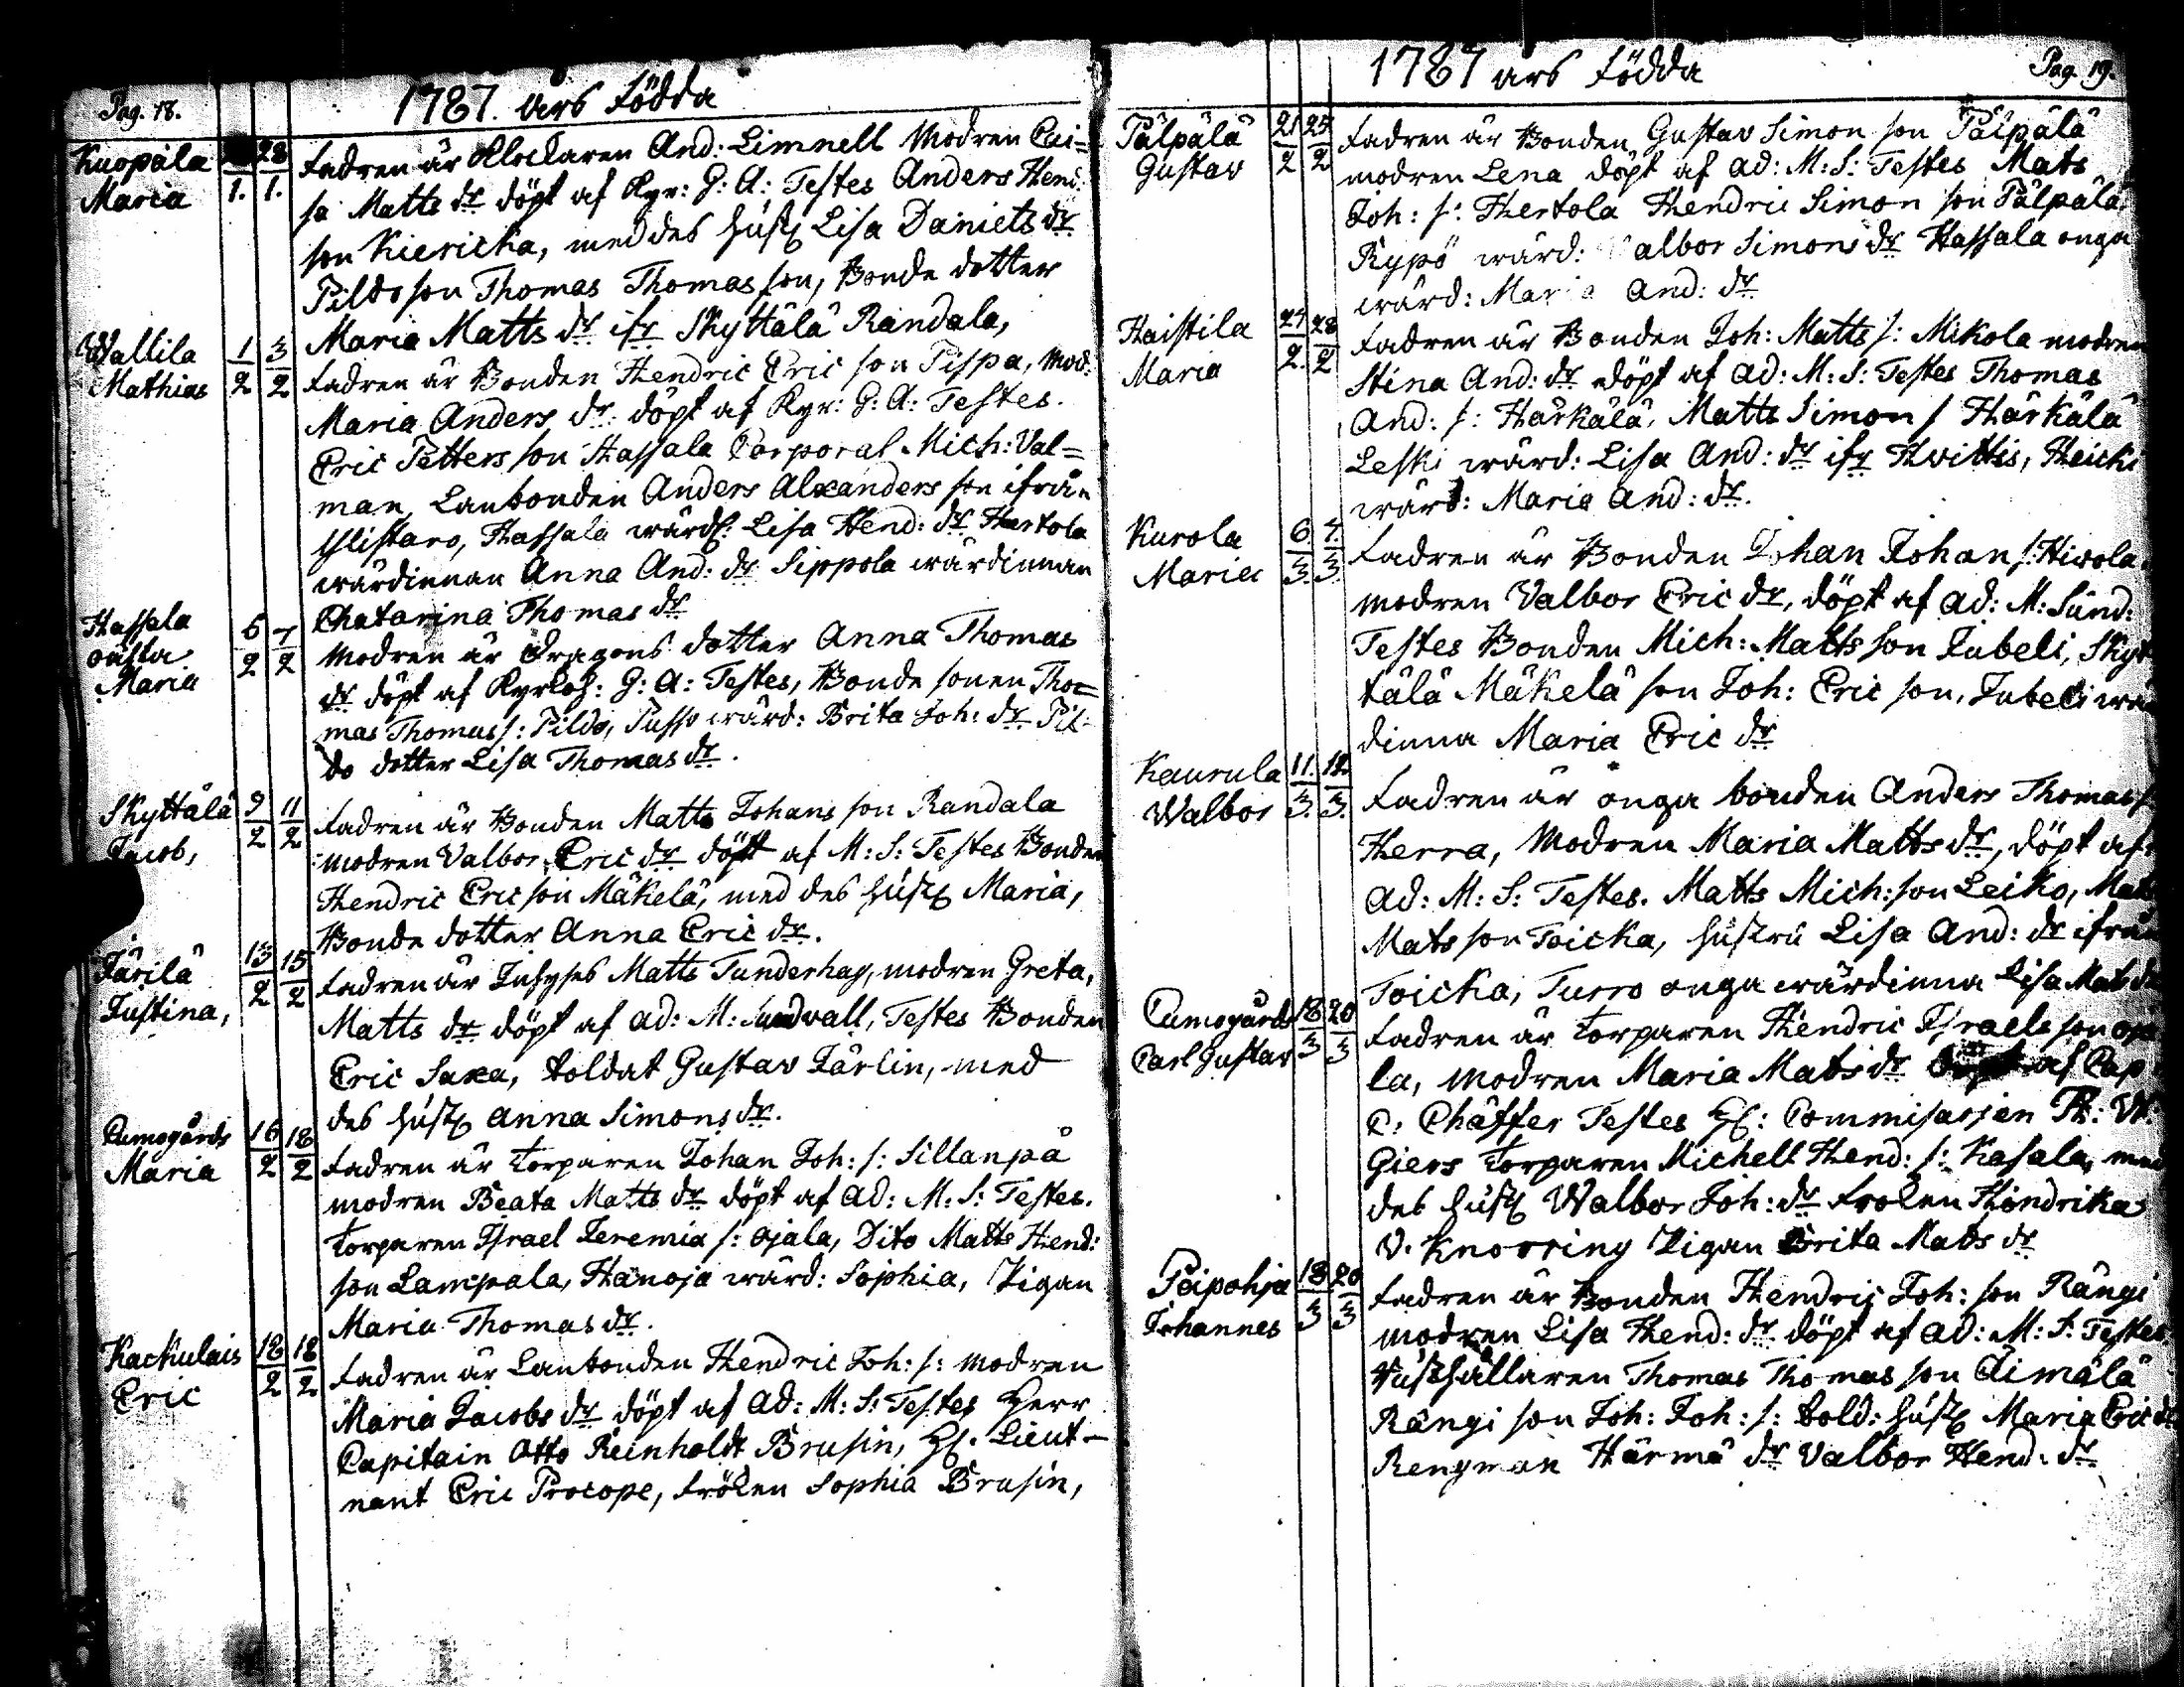 Pag. 18.
1787. års Födda
Kuopala Maria 28/1.
Fadren är Klockaren And: Limnell Modren Cai=
sa Matts dr döpt af Kyr: G: A: Testes Anders Hend:
son Kiericka, med des hustr Lisa Daniels dr
Pildo son Thomas Thomas son, Bonde dotter
Maria Matts dr ifr Skyttälä Randala,
Wallila Mathias 1/2 3/2
Fadren är Bonden Hendric Eric son Pispa, Mod:
Maria Anders dr. döpt af Kyr: G: A: Testes.
Eric Petters son Hassala Corporal Mich: Val=
man, Lanbonden Anders Alexanders son ifrån
Ylistaro, Hassala wärd: Lisa Hend: dr Hertola
wärdinnan Anna And: dr Sippola wärdinnan
Chatarina Thomas dr
Hassala oäkta Maria 5/2 7/2
Modren är Dragons dotter Anna Thomas
dr döpt af Kyrkoh: G: A: Testes, Bonde sonen Tho=
mas Thomas s: Pildo, Pusso wärd: Brita Joh: dr Pil-
do dotter Lisa Thomas dr.
Skyttälä Jacob, 9/2 11/2
Fadren är Bonden Matts Johans son Randala
modren Valbor Eric dr döpt af M: S: Testes Bonden
Hendric Eric son Mäkelä, med des hustr Maria,
Bonde dotter Anna Eric dr.
Järilä Justina, 13/2 15/2
Fadren är Inhyses Matts Tunderhag, modren Greta,
Matts dr döpt af ad: M: Sundvall, Testes Bonden
Eric Saxa, Soldat Gustav Järlin, med
des hustr Anna Simons dr.
Cumogårds Maria 16/2 18/2
Fadren är Torparen Johan Joh: s: Sillanpä
modren Beata Matts dr döpt af ad: M: S: Testes.
Torparen Israel Jeremia s: Ojala, Dito Matts Hend:
son Lampala, Hanoja wärd: Sophia, Pigan
Maria Thomas dr.
Kackulais Eric 18/2 18/2
Fadren är Lanbonden Hendric Joh: s: modren
Maria Jacobs dr döpt af Ad: M: S: Testes Herr
Capitain Otto Reinholdt Brusin, H: Lieut-
nant Eric Procope, Fröken Sophia Brusin,
1787 års Födda
Pag. 19.
Pälpälä Gustav 21/2 25/2
Fadren är Bonden Gustav Simon son Pälpälä
modren Lena döpt af ad: M: S: Testes Mats
Joh: s: Hertola Hendric Simon son Pälpälä
Rypö wärd: Walbor Simons dr Hassala onga
wärd: Maria And: dr
Haistila Maria 27/2. 28/2
Fadren är Bonden Joh: Matts s: Mikola modren
Stina And: dr döpt af ad: M: S: Testes Thomas
And: s: Härkälä, Matts Simon s Härkälä
Leski wärd: Lisa And: dr ifr Hvittis, Heicki
wärd: Maria And: dr.
Kurola Maria 6/3. 7/3.
Fadren är Bonden Johan Johan s: Hivola.
modren Valbor Eric dr, döpt af ad: M: Sund:
Testes Bonden Mich: Matts son Jubeli, Skyt
tälä Mäkelä son Joh: Eric son, Jubeli wär
dinna Maria Eric dr
Kaurula Walbor 11./3. 12./3.
Fadren är onga bonden Anders Thomas s
Herra, Modren Maria Matts dr, döpt af
Ad: M: S: Testes. Matts Mich: son Leiko, Mats
Mats son Toicka, hustru Lisa And: dr ifrån
Toicka, Turro onga wärdinna Lisa Mats dr
Cumogårds Carl Gustav 18/3 20/3
Fadren är Torparen Hendric Israels son Oja
la, modren Maria Mats dr döpt af Cap:
C. Chäffer Testes H: Commisarien
Giers Torparen Michell Hend: s: Kasala, med
des hustr Walbor Joh: dr Fröken Hindrika
V. Knorring Pigan Brita Mats dr
Peipohja Johannes 18/3 20/3
Fadren är Bonden Hendric Joh: son Rängi
modren Lisa Hend: dr döpt af ad: M: S: Testes
Rusthållaren Thomas Thomas son Äimälä
Rängi son Joh: Joh: s: Sold: hustr Maria Eric dr
Rengman Härmä dr Valbor Hend: dr